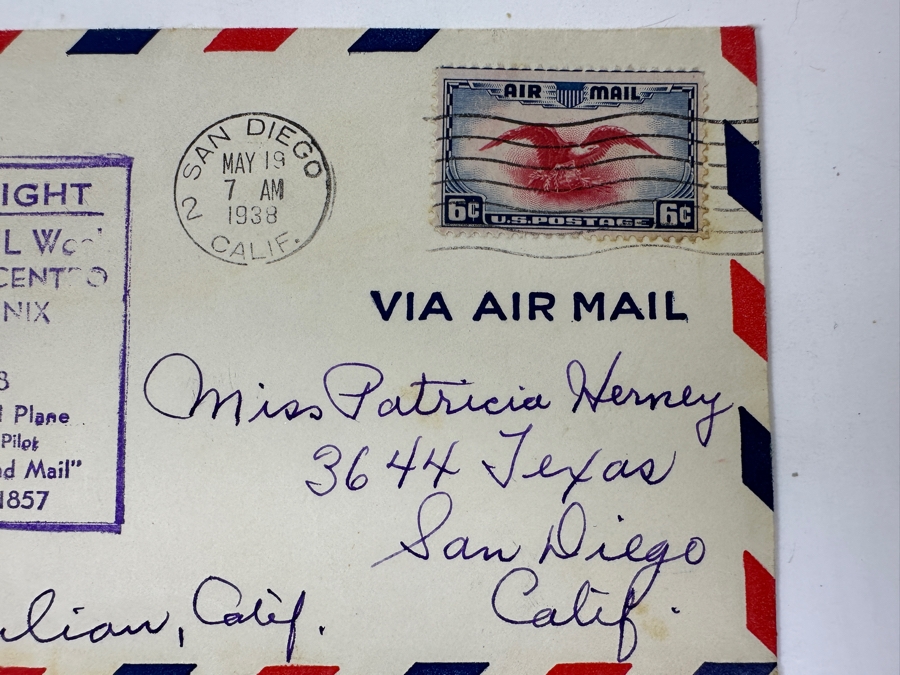 SAN DIEGO
MAY 19
7 AM
1938
2
CALIF.
AIR MAIL
6¢ U.S. POSTAGE 6¢
IGHT
L
CENTRO
NIX
8
Plane
Pilot
d Mail"
1857
VIA AIR MAIL
Miss Patricia Herney
3644 Texas
San Diego
Calif.
lian, Calif.